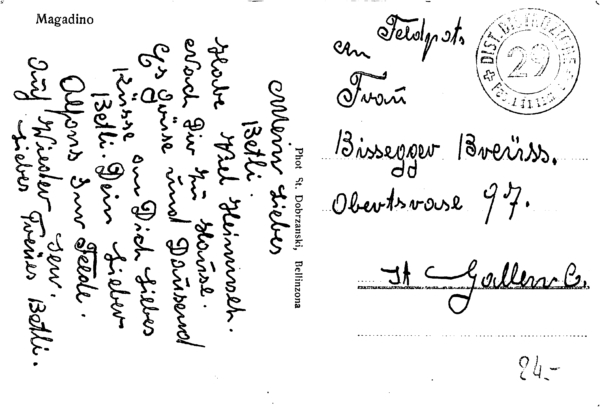 Magadino
Mein Liebes
Betli.
Habe Viel Heimweh.
Nach Dir zu Hause.
Es Grüse und Dausend
Küsse an Dich Liebes
Betli. Dein Lieber
Alfons Im Felde.
Auf Wieder
Liebes Treues Betli.
Phot St. Dobrzanski, Bellinzona
Feldpost
An
Frau
Bissegger Breüss.
29
St Gallen C.
24.-